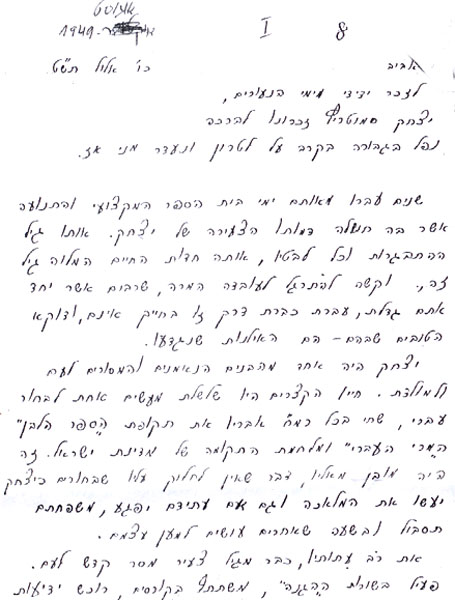 אוגוסט
1949
I
כו' אלול תש"ט
אביב
לזכר ידידי מימי הנעורים,
יצחק זכרונו לברכה
נפל בגבורה בקרב על לטרון ונעדר מני אז.
שנים עברו מאותם ימי בית הספר המקצועי והתנועה
אשר בה דמותו הצעירה של יצחק. אותו גיל
ההתבגרות וכל לבטיו, אותה חדות החיים המלווה גיל
זה, וקשה להתרגל לעובדה המרה, שרבים אשר יחד
אתם גדלת, עברת כברת דרך זו בחייך אינם, ודוקא
הטובים שבהם - הם האילנות שנגדעו.
יצחק היה אחד מהבנים הנאמנים והמסורים לעם
ולמולדת. חייו הקצרים היו שלשלת מעשים אחת לבחור
עברי, שחי בכל רמ"ח אבריו את תקופת "הספר הלבן"
"המרי העברי" ומלחמת התקומה של מדינת ישראל. זה
היה מובן מאליו, דבר שאין לחלוק עליו שבחורים כיצחק
יעשו את המלאכה וגם אם עתידם יפגע, משפחתם
תסבול ובשעה שאחרים עושים למען עצמם.
את רב עתותיו, כבר מגיל צעיר מסר קדש לעם.
פעיל בשורות "ההגנה", משתתף בקורסים, רוכש ידיעות